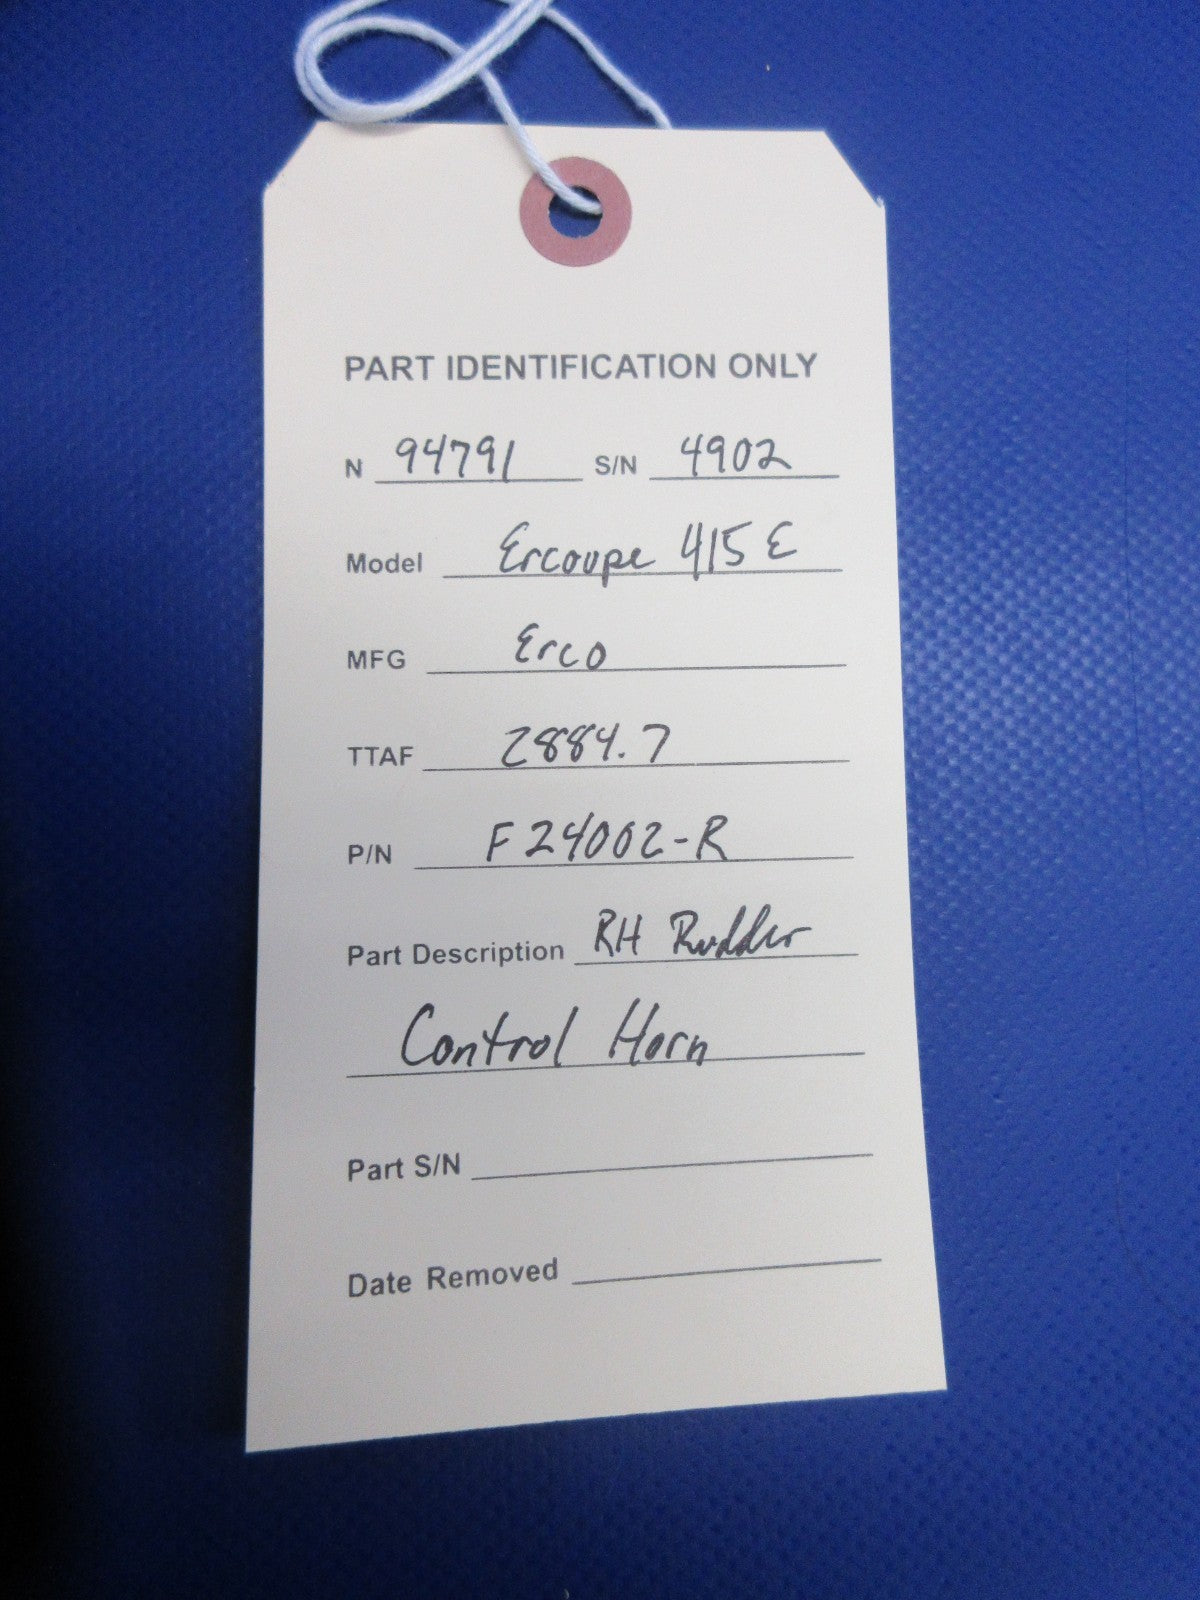 PART IDENTIFICATION ONLY
N 94791 S/N 4902
Model Ercoupe 415 E
MFG Erco
TTAF 2884.7
P/N F24002-R
Part Description RH Rudder
Control Horn
Part S/N
Date Removed